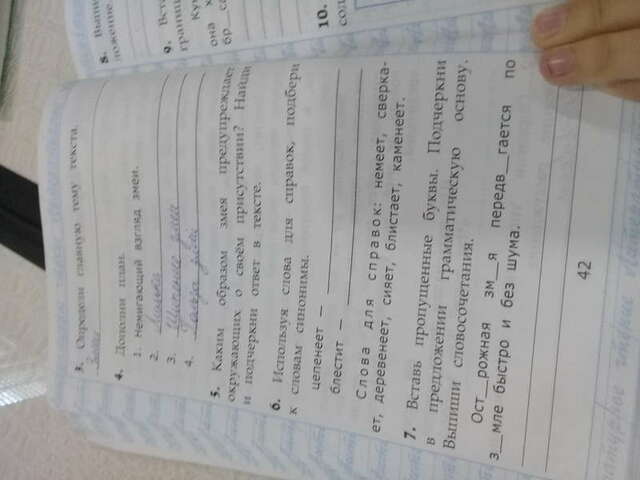 3. Определи главную тему текста.
Змеи
4. Дополни план.
1. Немигающий взгляд змеи.
2.
3. Шипение змеи
4. Польза змеи
5. Каким образом змея предупреждает
окружающих о своём присутствии? Найди
и подчеркни ответ в тексте.
6. Используя слова для справок, подбери
к словам синонимы.
цепенеет —
блестит —
Слова для справок: немеет, сверка-
ет, деревенеет, сияет, блистает, каменеет.
7. Вставь пропущенные буквы. Подчеркни
в предложении грамматическую основу.
Выпиши словосочетания.
Ост__рожная зм__я передв__гается по
з__мле быстро и без шума.
42
8.
9.
она
бр
10.